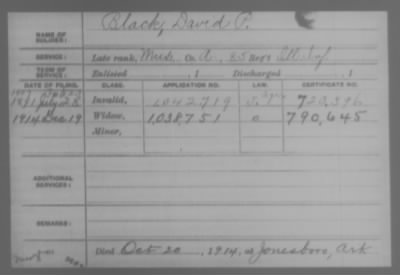 Black, David P.
NAME OF SOLDIER:
SERVICE: Late rank, Co. A, 85 Reg't Ill. Inf.
TERM OF SERVICE: Enlisted , 1 Discharged , 1
DATE OF FILING. CLASS. APPLICATION NO. LAW. CERTIFICATE NO.
1891 July 28 Invalid, 1042719
1914 Dec 19 Widow, 1,038,751 790,645
Minor,
ADDITIONAL SERVICES:
REMARKS:
Died Oct 20, 1914, at Jonesboro, Ark